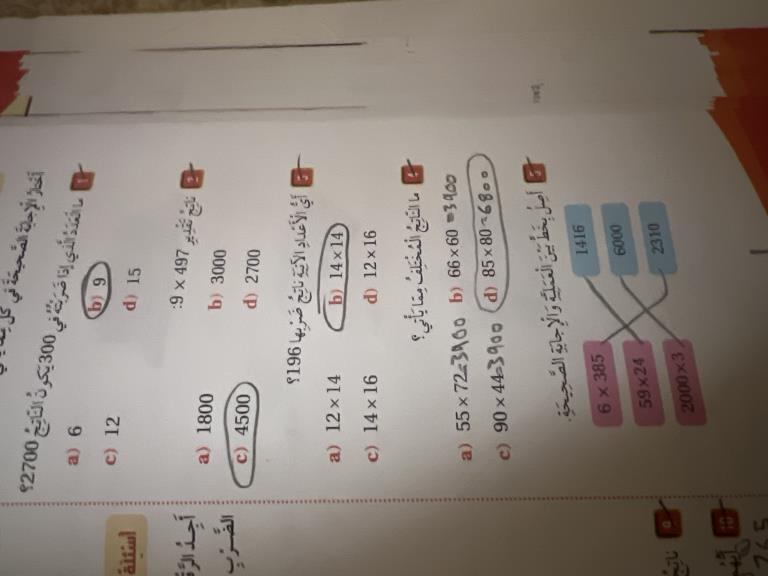 أختار الإجابة الصحيحة في كل مما يأتي
1 ما العدد الذي إذا ضربته في 300 يكون الناتج 2700؟
a) 6 b) 9
c) 12 d) 15
2 ناتج تقدير 497 × 9:
a) 1800 b) 3000
c) 4500 d) 2700
3 أي الأعداد الآتية ناتج ضربها 196؟
a) 12 × 14 b) 14 × 14
c) 14 × 16 d) 12 × 16
4 ما الناتج المختلف مما يأتي؟
a) 55 × 72=3900 b) 66 × 60 =3900
c) 90 × 44=3900 d) 85 × 80=6800
5 أصل بخط بين العملية والإجابة الصحيحة.
6 × 385 1416
59 × 24 6000
2000 × 3 2310
أسئلة
الضرب
9 ناتج
10
765